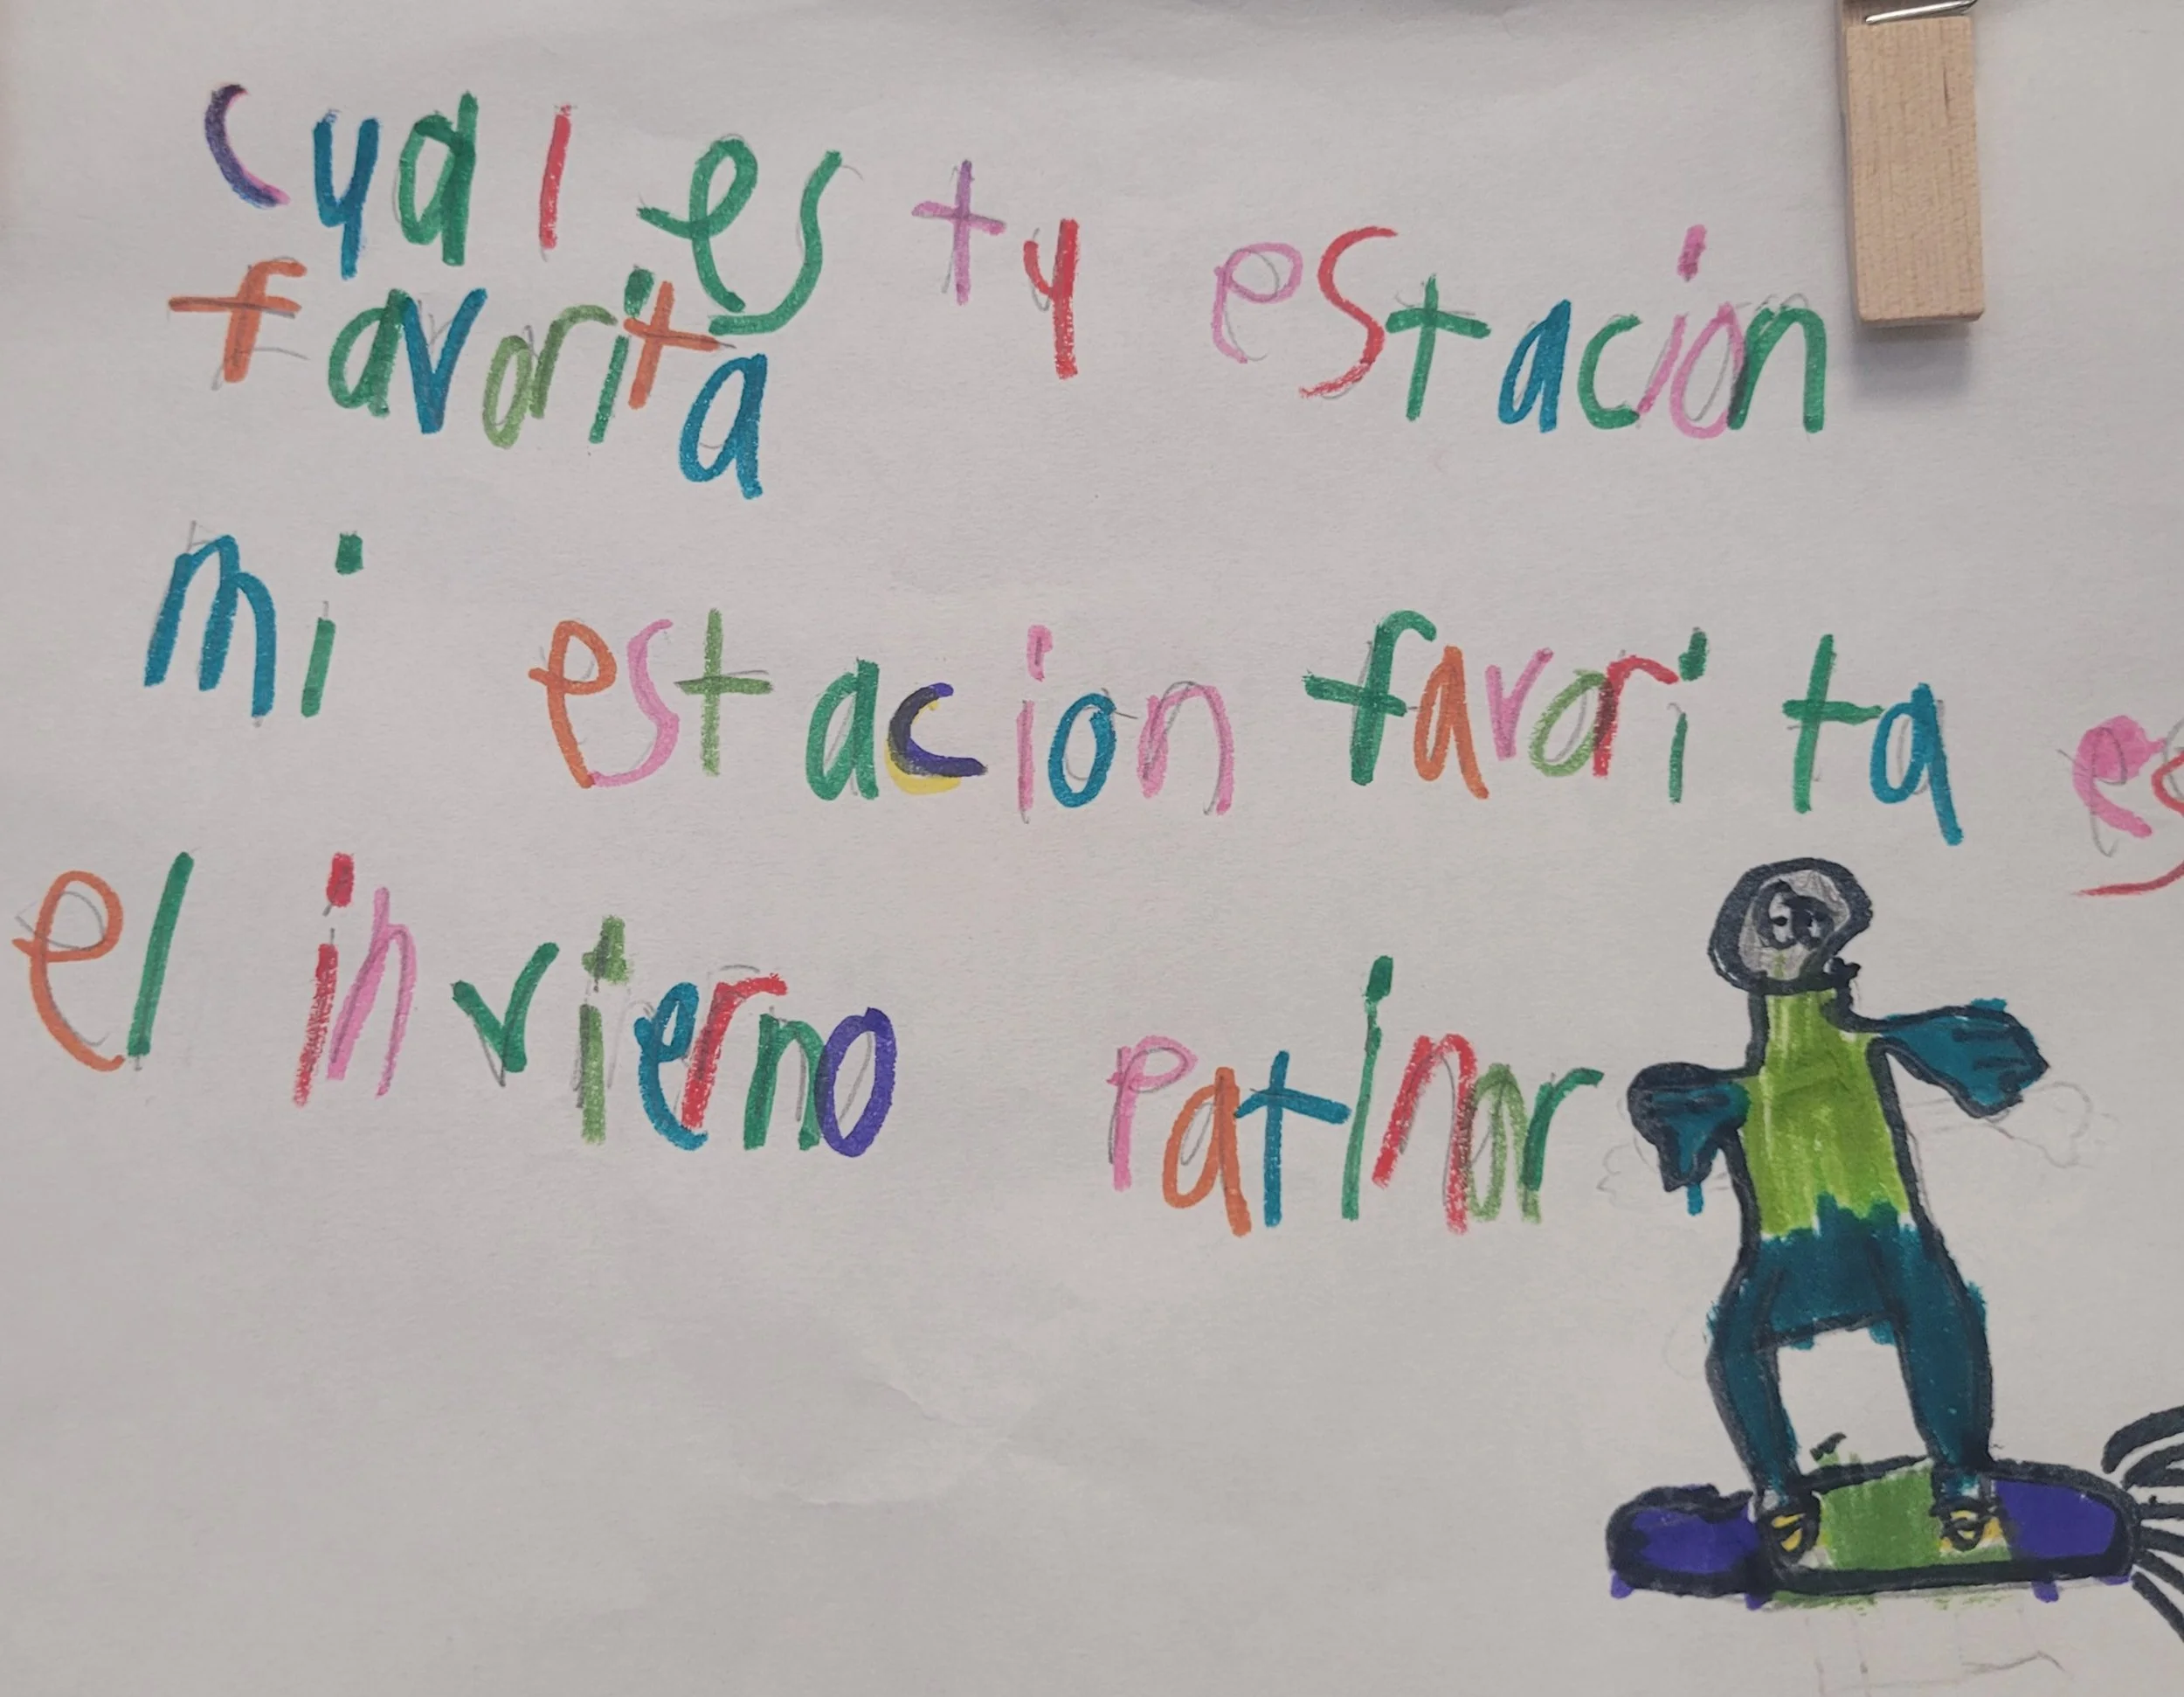 cual es tu estacion
favorita
mi estacion favorita es
el invierno patinar